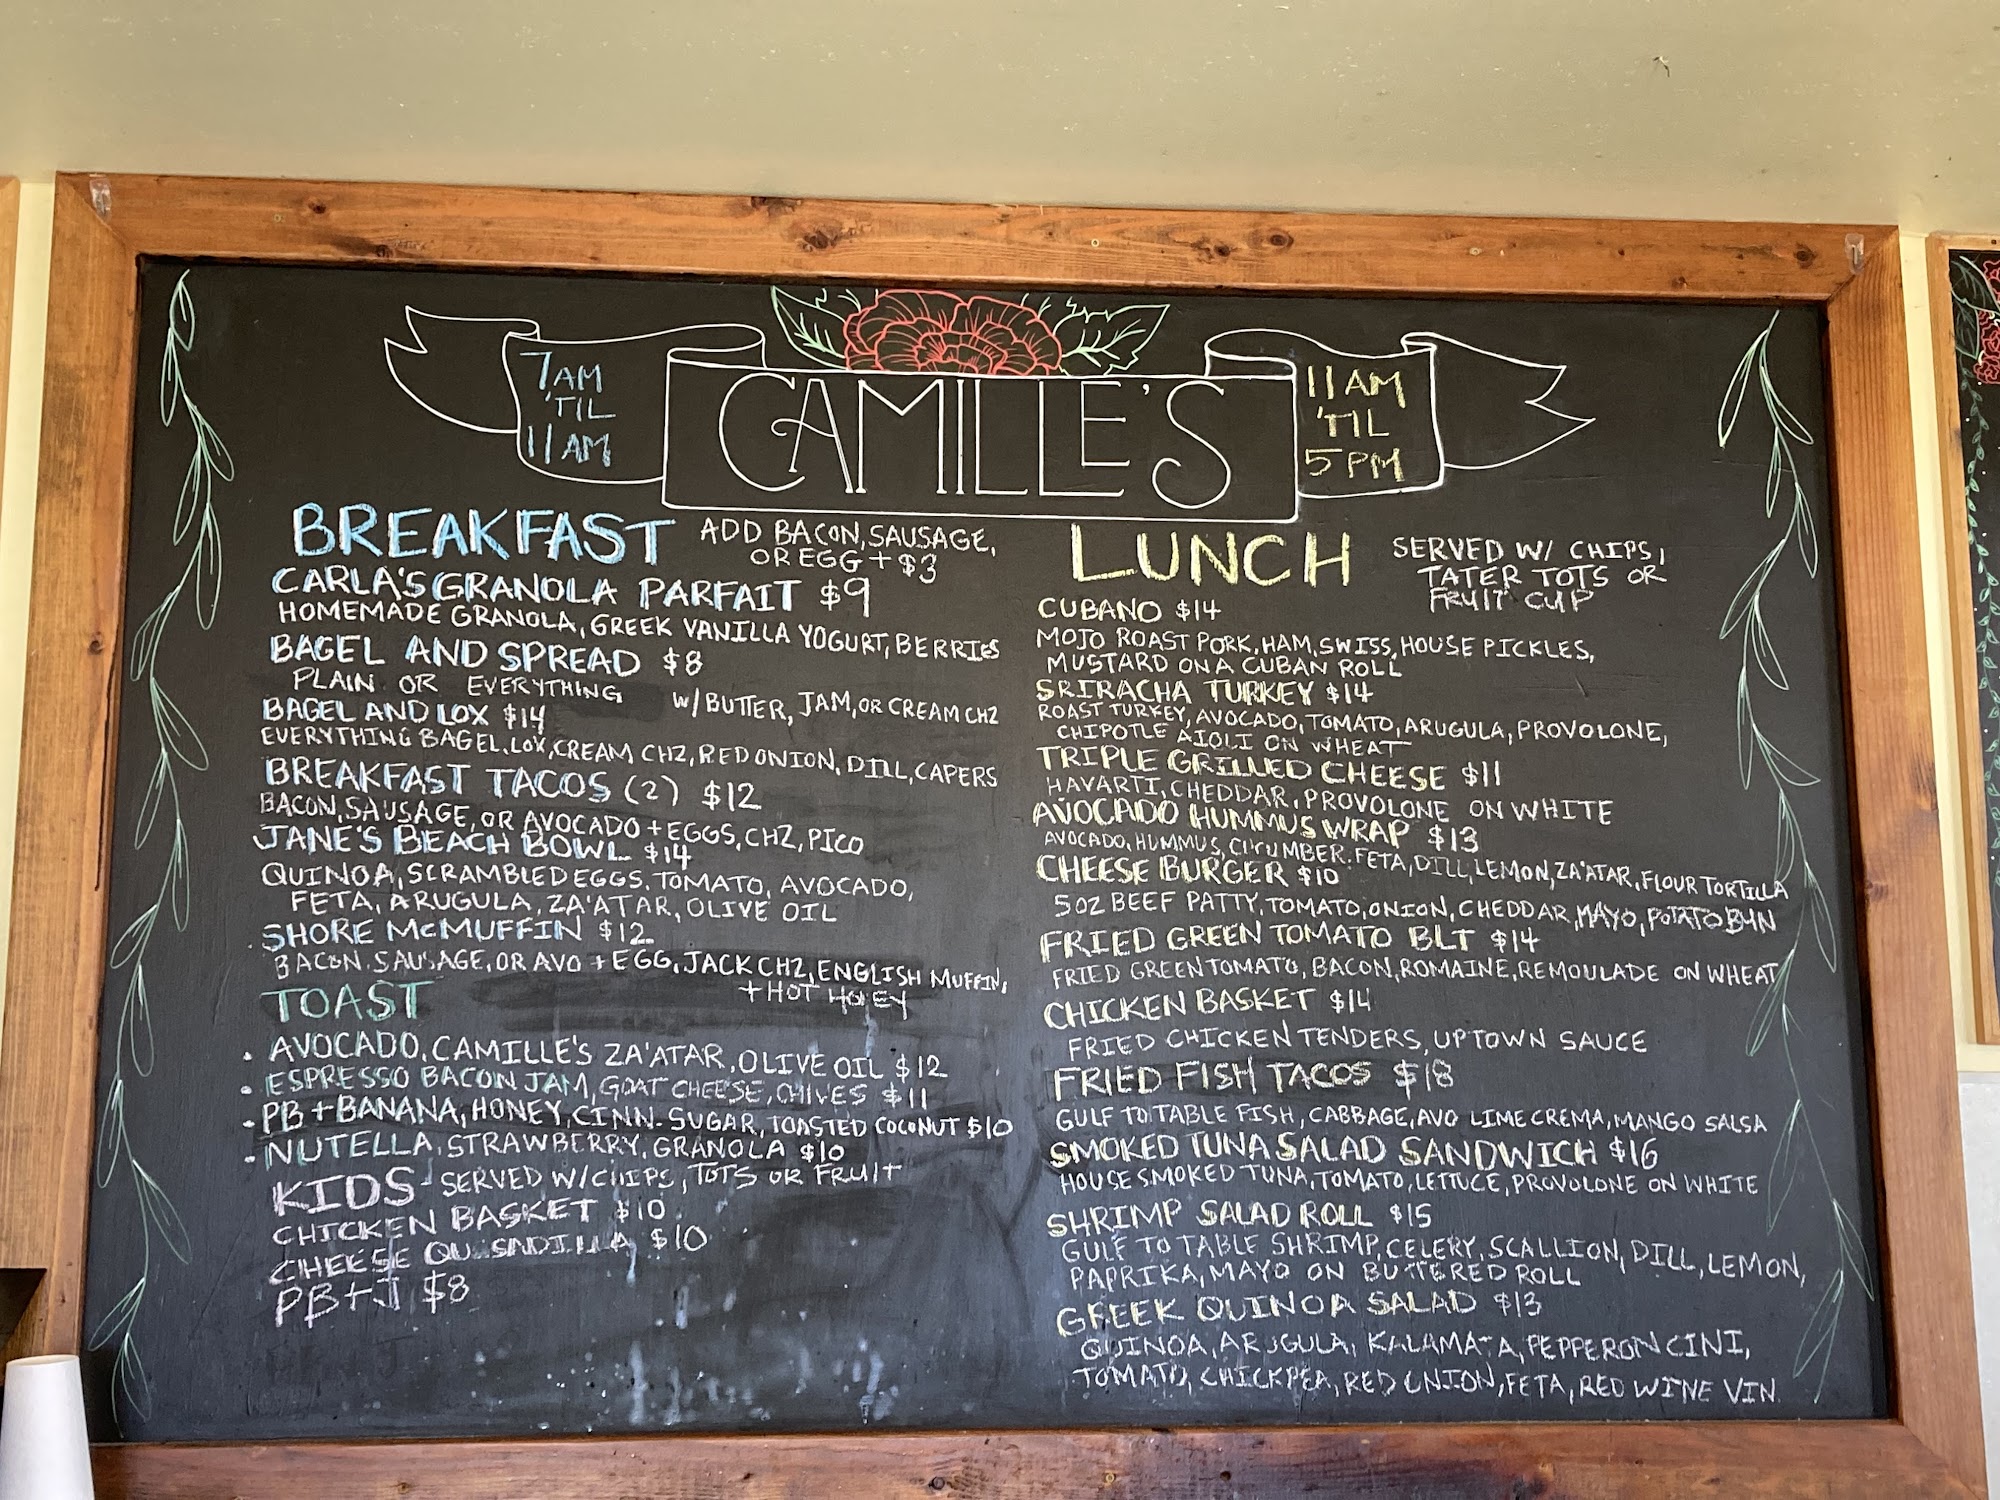 7AM
'TIL
11AM
CAMILLE'S
11AM
'TIL
5PM
BREAKFAST
ADD BACON, SAUSAGE,
OR EGG + $3
CARLA'S GRANOLA PARFAIT $9
HOMEMADE GRANOLA, GREEK VANILLA YOGURT, BERRIES
BAGEL AND SPREAD $8
PLAIN OR EVERYTHING W/ BUTTER, JAM, OR CREAM CHZ
BAGEL AND LOX $14
EVERYTHING BAGEL, LOX, CREAM CHZ, RED ONION, DILL, CAPERS
BREAKFAST TACOS (2) $12
BACON, SAUSAGE, OR AVOCADO + EGGS, CHZ, PICO
JANE'S BEACH BOWL $14
QUINOA, SCRAMBLED EGGS, TOMATO, AVOCADO,
FETA, ARUGULA, ZA'ATAR, OLIVE OIL
SHORE McMUFFIN $12
BACON, SAUSAGE, OR AVO + EGG, JACK CHZ, ENGLISH MUFFIN,
+ HOT HONEY
TOAST
• AVOCADO, CAMILLE'S ZA'ATAR, OLIVE OIL $12
• ESPRESSO BACON JAM, GOAT CHEESE, CHIVES $11
• PB + BANANA, HONEY, CINN. SUGAR, TOASTED COCONUT $10
• NUTELLA, STRAWBERRY, GRANOLA $10
KIDS - SERVED W/ CHIPS, TOTS OR FRUIT
CHICKEN BASKET $10
CHEESE QUESADILLA $10
PB+J $8
LUNCH
SERVED W/ CHIPS,
TATER TOTS OR
FRUIT CUP
CUBANO $14
MOJO ROAST PORK, HAM, SWISS, HOUSE PICKLES,
MUSTARD ON A CUBAN ROLL
SRIRACHA TURKEY $14
ROAST TURKEY, AVOCADO, TOMATO, ARUGULA, PROVOLONE,
CHIPOTLE AIOLI ON WHEAT
TRIPLE GRILLED CHEESE $11
HAVARTI, CHEDDAR, PROVOLONE ON WHITE
AVOCADO HUMMUS WRAP $13
AVOCADO, HUMMUS, CUCUMBER, FETA, DILL, LEMON, ZA'ATAR, FLOUR TORTILLA
CHEESE BURGER $10
5OZ BEEF PATTY, TOMATO, ONION, CHEDDAR, MAYO, POTATO BUN
FRIED GREEN TOMATO BLT $14
FRIED GREEN TOMATO, BACON, ROMAINE, REMOULADE ON WHEAT
CHICKEN BASKET $14
FRIED CHICKEN TENDERS, UPTOWN SAUCE
FRIED FISH TACOS $18
GULF TO TABLE FISH, CABBAGE, AVO LIME CREMA, MANGO SALSA
SMOKED TUNA SALAD SANDWICH $16
HOUSE SMOKED TUNA, TOMATO, LETTUCE, PROVOLONE ON WHITE
SHRIMP SALAD ROLL $15
GULF TO TABLE SHRIMP, CELERY, SCALLION, DILL, LEMON,
PAPRIKA, MAYO ON BUTTERED ROLL
GREEK QUINOA SALAD $13
QUINOA, ARUGULA, KALAMATA, PEPPERONCINI,
TOMATO, CHICKPEA, RED ONION, FETA, RED WINE VIN.